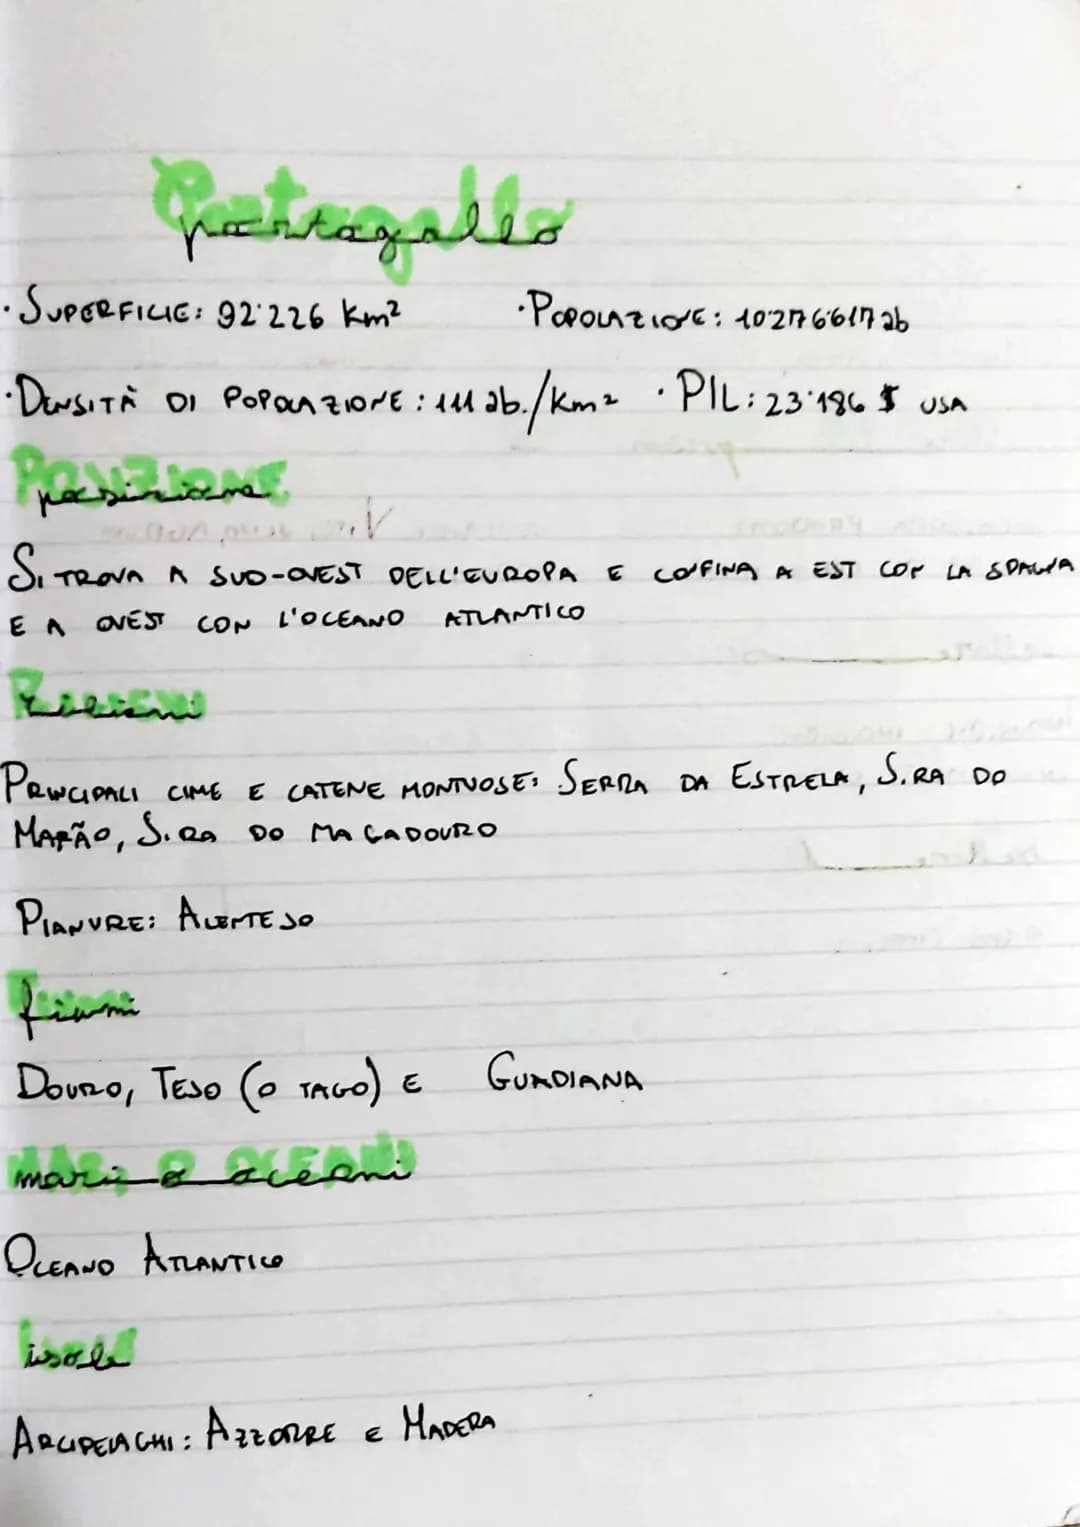 Portogallo
·SUPERFICIE: 92'226 Km² ·POPOLAZIONE: 10'276'617 ab
·DENSITÀ DI POPOLAZIONE: 111 ab./Km² ·PIL: 23'186 $ USA
POSIZIONE
SI TROVA A SUD-OVEST DELL'EUROPA E CONFINA A EST CON LA SPAGNA
E A OVEST CON L'OCEANO ATLANTICO
Rilievi
PRINCIPALI CIME E CATENE MONTUOSE: SERRA DA ESTRELA, S.RA DO
MARÃO, S.RA DO MACADOURO
PIANURE: ALENTEJO
fiumi
DOURO, TEJO (O TAGO) E GUADIANA
mari e oceani
OCEANO ATLANTICO
isole
ARCIPELAGHI: AZZORRE E MADERA